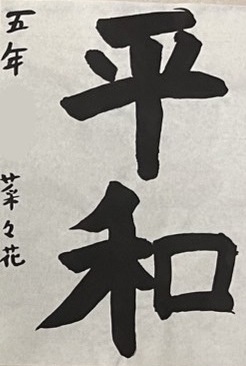 平和
五年
菜々花